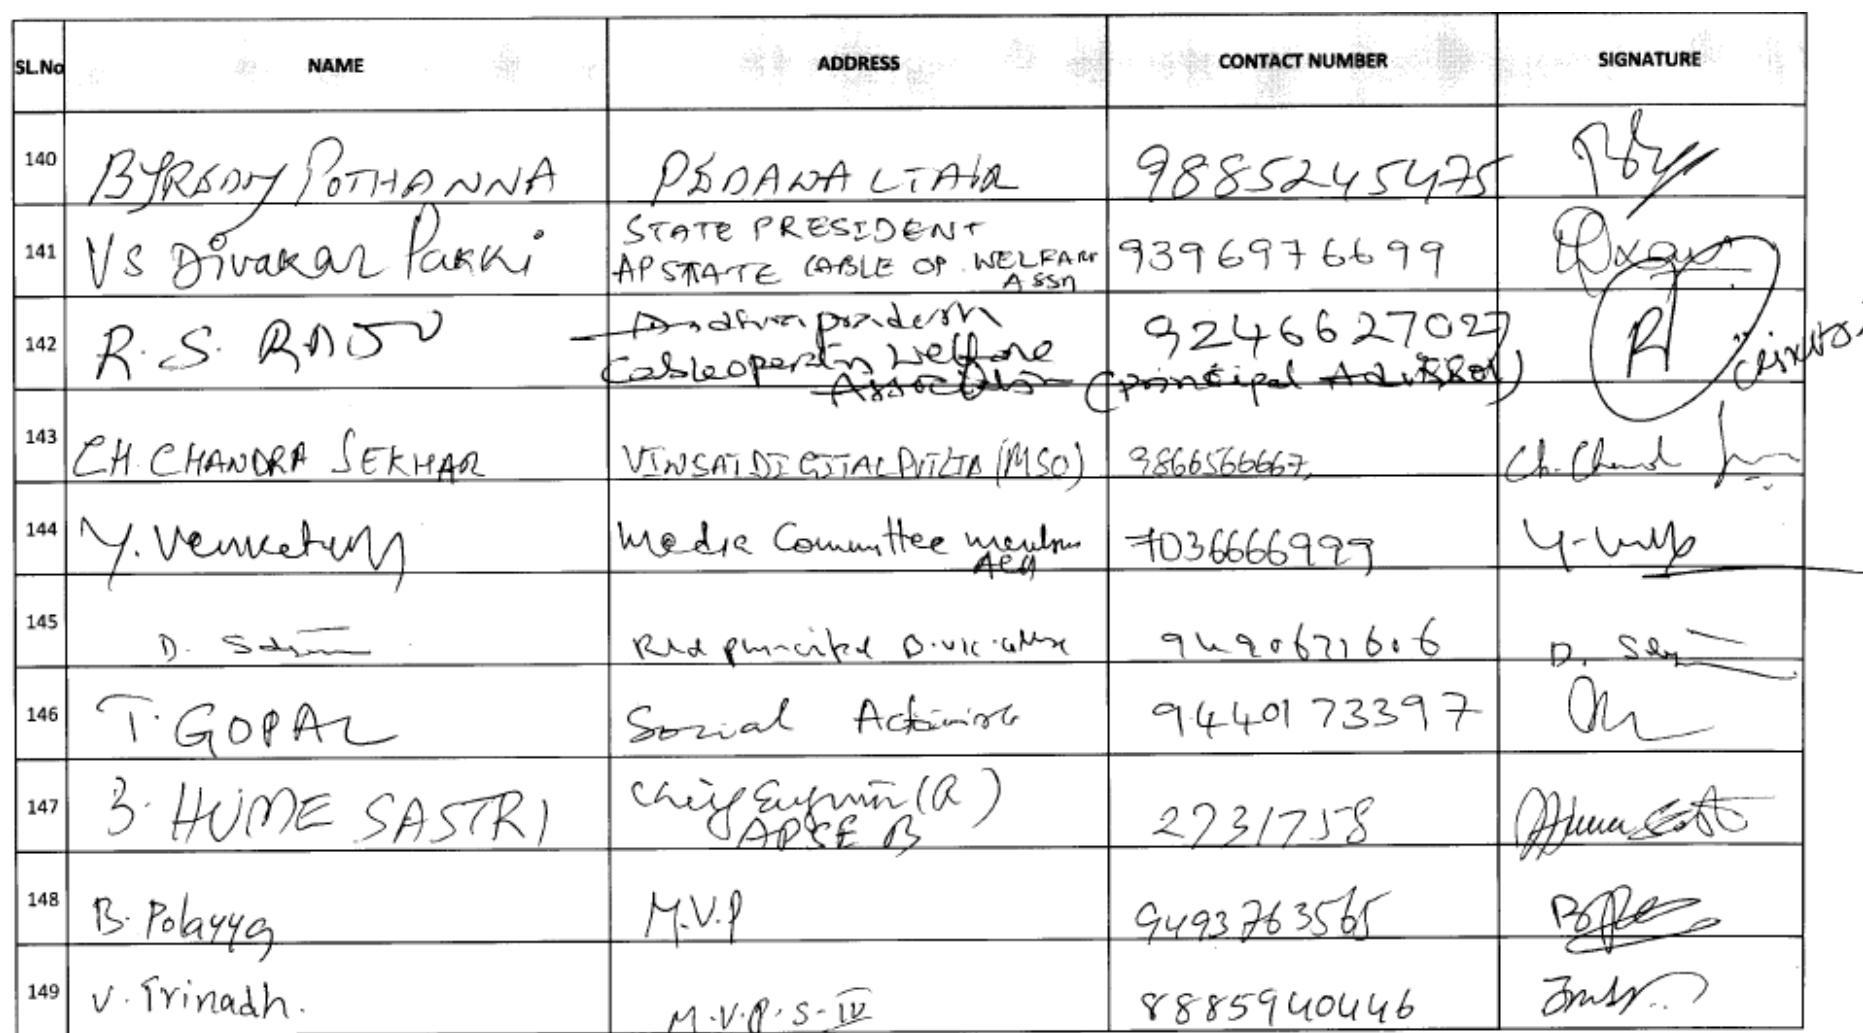 SL.No NAME ADDRESS CONTACT NUMBER SIGNATURE
140 BYREDDY POTHANNA PEDAWALTAIR 9885245475
141 VS Divakar Pakki STATE PRESIDENT 9396976699
AP STATE CABLE OP. WELFARE
ASSn
142 R. S. RAJU Andhra pradesh 9246627027
Cableoperators Welfare
Association (principal Advisor)
143 CH. CHANDRA SEKHAR VINSAI DIGITAL PVT LTD (MSO) 9866566667 Ch. Chand
144 Y. Media Committee member 7036666999
145 D. Rtd principal 9490671606 D.
146 T. GOPAL Social Activist 9440173397
147 B. HUME SASTRI Chief Engineer (R) 2731758
APSEB
148 B. Polayya M.V.P 9493763565
149 V. Trinadh. M.V.P. S-IV 8885940446